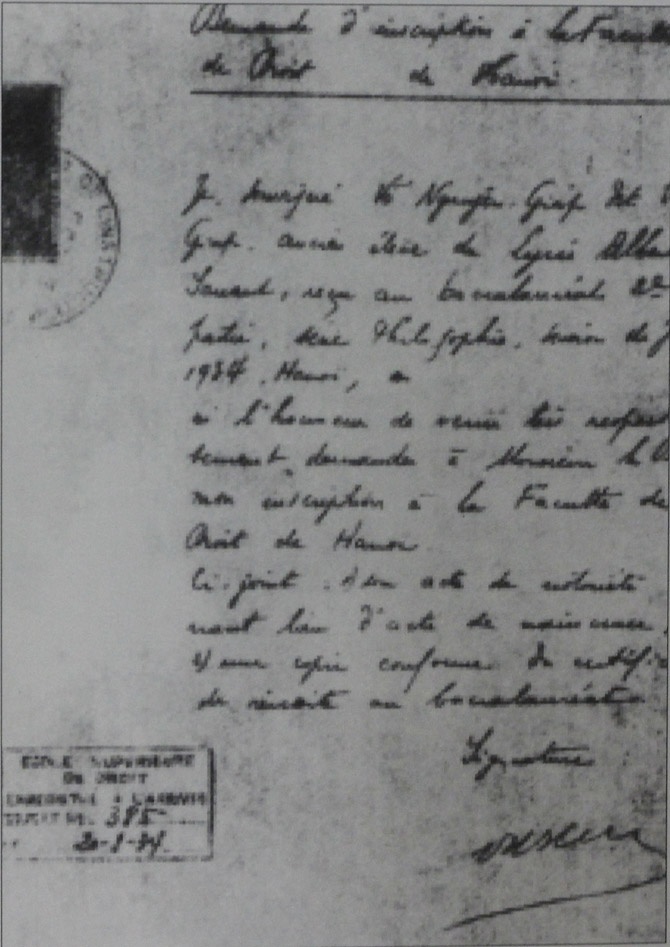 Demande d'inscription à la Facult
de Droit de Hanoi
Je soussigné Võ Nguyên Giáp dit
Giap. ancien élève du Lycée Albe
Sarraut, reçu au baccalauréat 2e
partie, série Philosophie, session de
1934, Hanoi,
ai l'honneur de venir très respec
sement demander à Monsieur le
mon inscription à la Faculté de
Droit de Hanoi
Ci-joint: 1) un acte de notoriété
nant lieu d'acte de naissance
2) une copie conforme du certifi
de réussite au baccalauréat
Signature
ECOLE SUPERIEURE
DE DROIT
ENREGISTRE A L'ARRIVEE
385